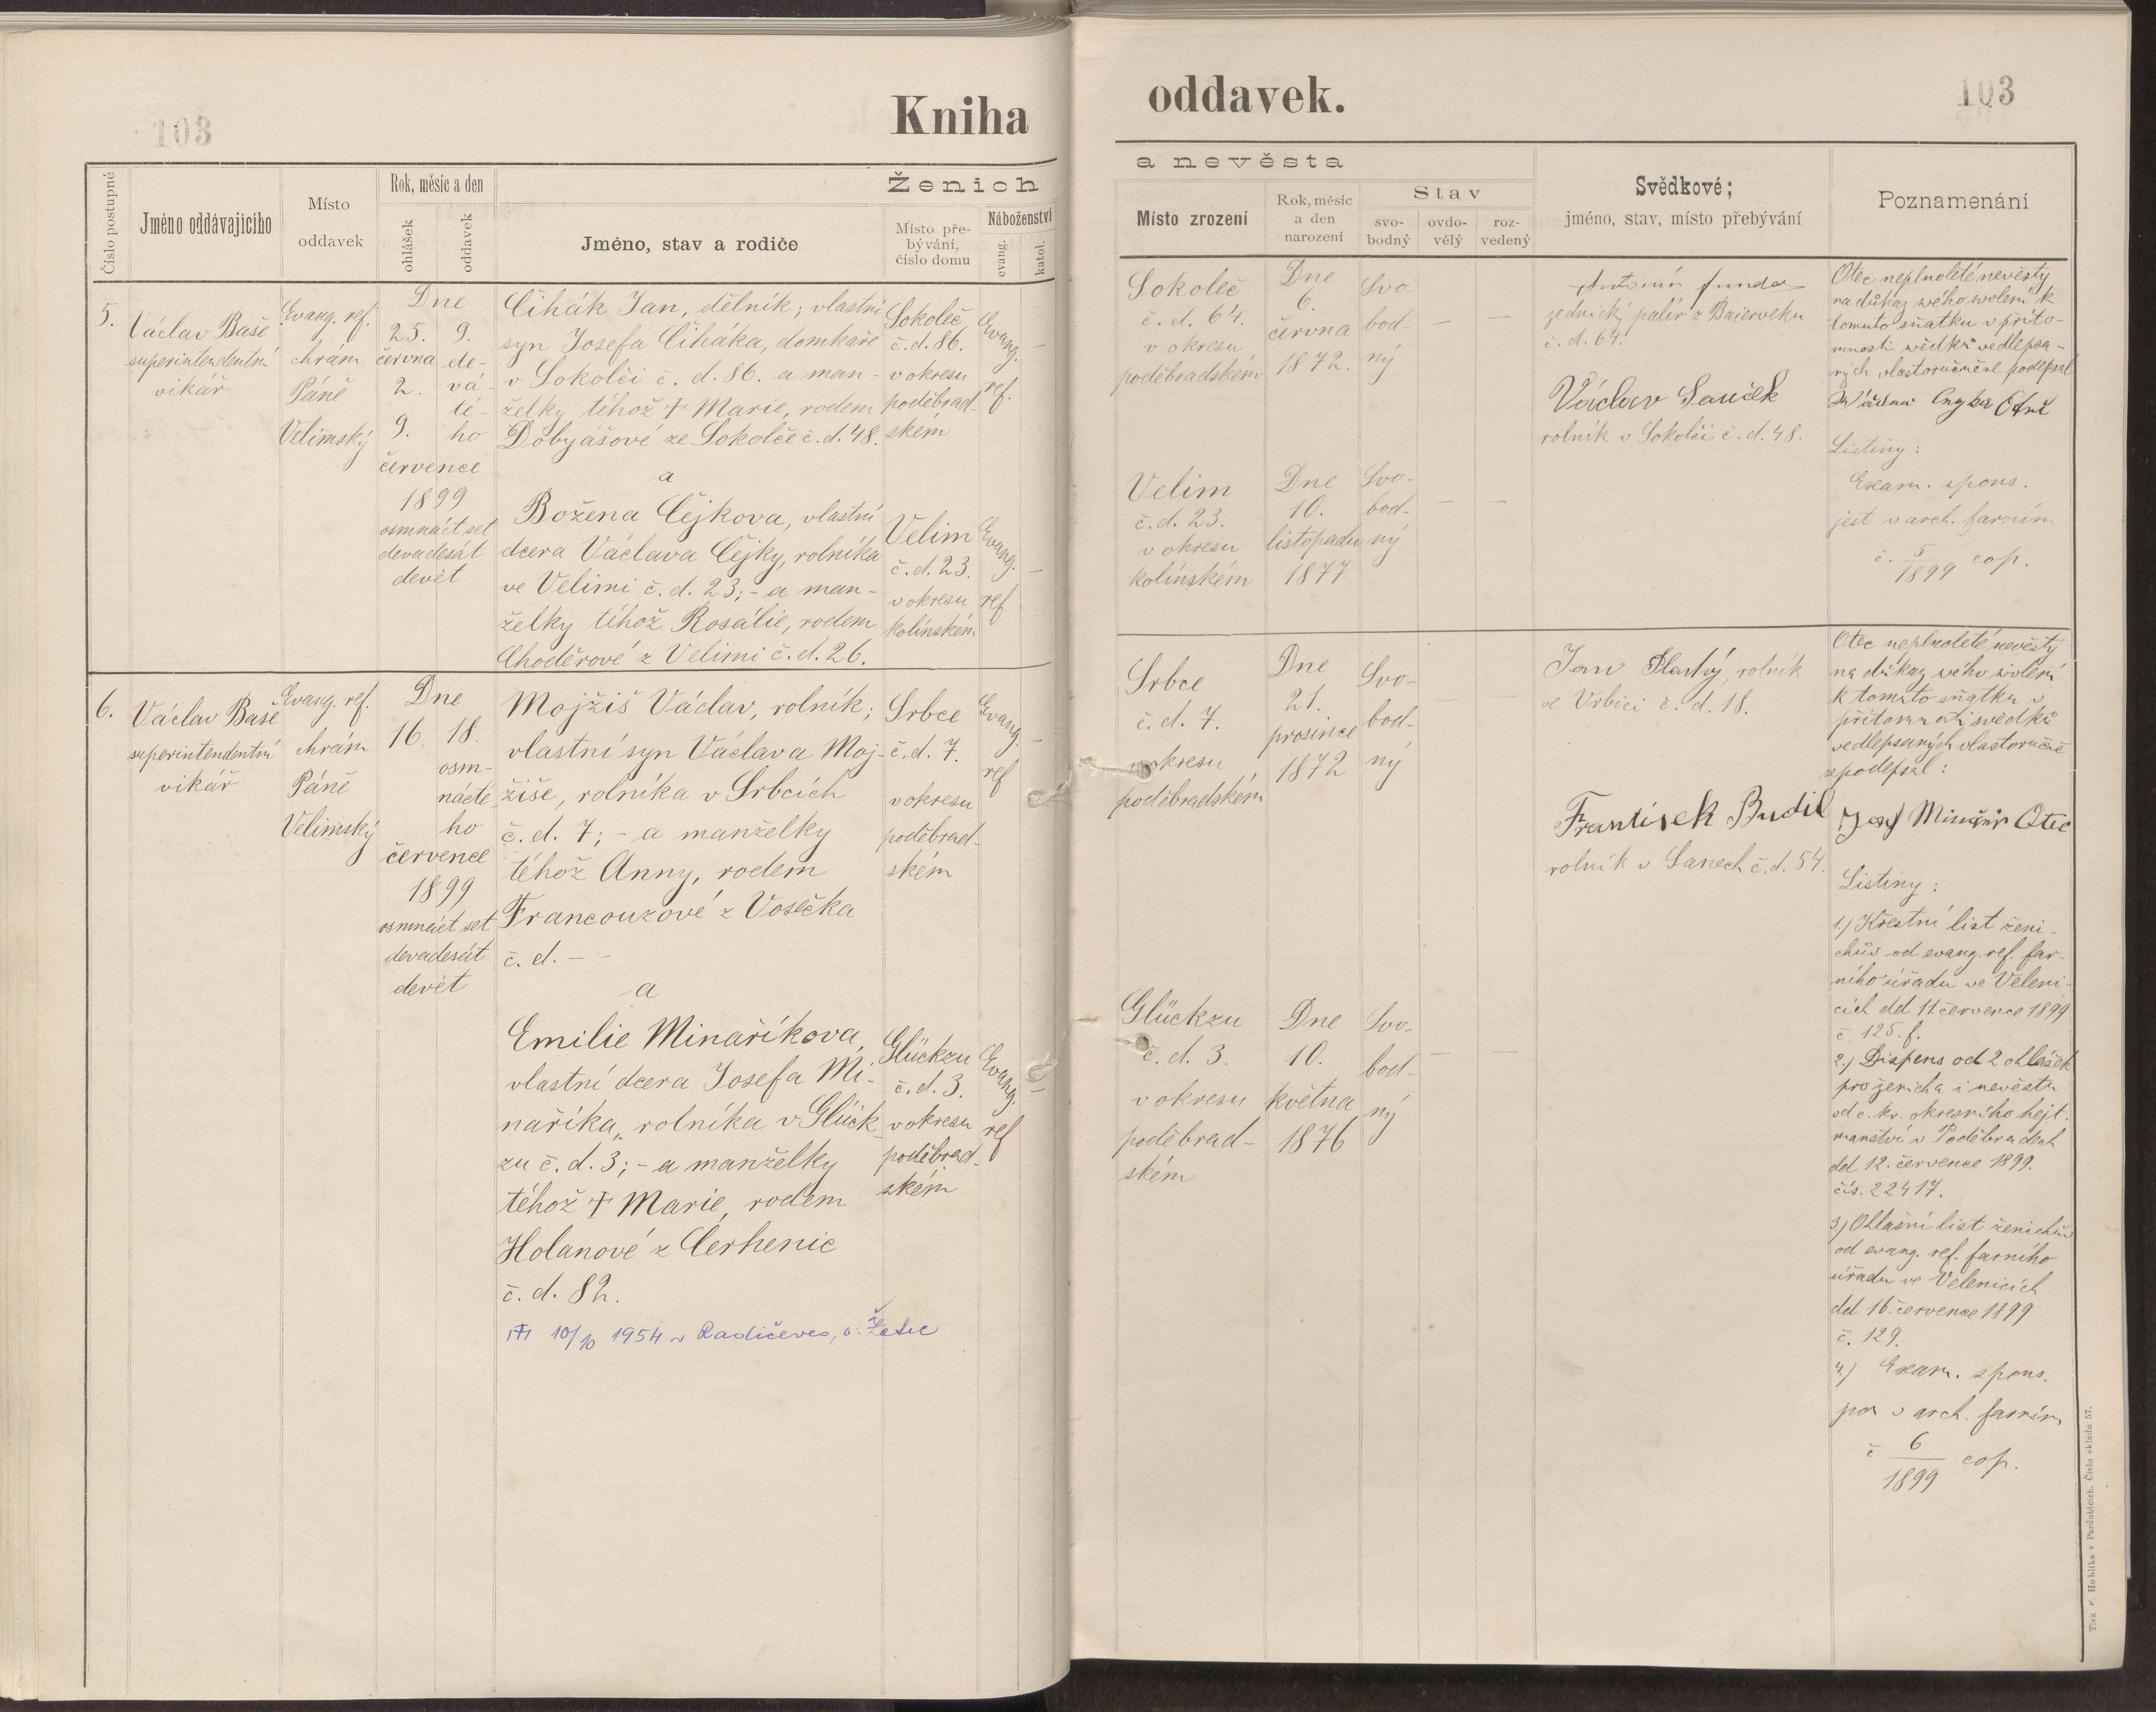 103
Kniha
oddavek.
103
Číslo postupné
Jméno oddávajícího
Místo
oddavek
Rok, měsíc a den
ohlášek
oddavek
Ženich
Jméno, stav a rodiče
Místo pře-
bývání,
číslo domu
Náboženství
evang.
katol.
a nevěsta
Místo zrození
Rok, měsíc
a den
narození
Stav
svo-
bodný
ovdo-
vělý
roz-
vedený
Svědkové;
jméno, stav, místo přebývání
Poznamenání
5.
Václav Baše
superintendentní
vikář
Evang. ref.
chrám
Páně
Velimský
Dne
25. 9.
června de-
2. vá-
té-
9. ho
července
1899
osmnáct set
devadesát
devět
Čihák Jan, dělník; vlastní
syn Josefa Čiháka, domkáře
v Sokolči č. d. 86. a man-
želky téhož † Marie, rodem
Dobyášové ze Sokolče č. d. 48.
a
Božena Čejkova, vlastní
dcera Václava Čejky, rolníka
ve Velimi č. d. 23; - a man-
želky téhož Rosálie, rodem
Choděrové z Velimi č. d. 26.
Sokoleč
č. d. 86.
v okresu
poděbrad-
ském
Evang.
ref.
–
Velim
č. d. 23.
v okresu
kolínském
Evang.
ref.
–
Sokoleč
č. d. 64.
v okresu
poděbradském
Dne
6.
června
1872.
Svo-
bod-
ný
– –
Velim
č. d. 23.
v okresu
kolínském
Dne
10.
listopadu
1877
Svo-
bod-
ný
– –
Antonín Funda
zednický palír z Baierveku
č. d. 64.
Václav Souček
rolník v Sokolči č. d. 48.
Otec neplnoleté nevěsty
na důkaz svého svolení k
tomuto sňatku v příto-
mnosti svědků vedlepsa-
ných vlastoručně se podepsal
Listiny:
Exam. spons.
jest v arch. farním
č. 5/1899 cop.
6.
Václav Baše
superintendentní
vikář
Evang. ref.
chrám
Páně
Velimský
Dne
16. 18.
osm-
nácté-
ho
července
1899
osmnáct set
devadesát
devět
Mojžiš Václav, rolník;
vlastní syn Václava Moj-
žiše, rolníka v Srbcích
č. d. 7; - a manželky
téhož Anny, rodem
Francouzové z Vosečka
č. d. –
a
Emilie Minaříkova,
vlastní dcera Josefa Mi-
naříka, rolníka v Glück-
zu č. d. 3; - a manželky
téhož † Marie, rodem
Holanové z Cerhenic
č. d. 82.
10/10 1954 v Radičeves, o. Žatec
Srbce
č. d. 7.
v okresu
poděbrad-
ském
Evang.
ref
–
Glückzu
č. d. 3.
v okresu
poděbrad-
ském
Evang.
ref
–
Srbce
č. d. 7.
v okresu
poděbradském
Dne
21.
prosince
1872
Svo-
bod-
ný
– –
Glückzu
č. d. 3.
v okresu
poděbrad-
ském
Dne
10.
května
1876
Svo-
bod-
ný
– –
Jan Šťastný, rolník
ve Vrbici č. d. 18.
František Budil
rolník v Sanech č. d. 54.
Otec neplnoleté nevěsty
na důkaz svého svolení
k tomuto sňatku v
přítomnosti svědků
vedlepsaných vlastoručně
se podepsal:
Josef Minařík Otec
Listiny:
1.) Křestní list ženi-
chův od evang. ref. far-
ního úřadu ve Veleni-
cích dd 11. července 1899
č. 125. f.
2.) Dispens od 2 ohlášek
pro ženicha i nevěstu
od c. kr. okresního hejt-
manství v Poděbradech
dd 12. července 1899.
čís. 22417.
3.) Ohlašní list ženichův
od evang. ref. farního
úřadu ve Velenicích
dd 16. července 1899
č. 129.
4.) Exam. spons.
v arch. farním
č 6/1899 cop.
Tisk F. Hoblíka v Pardubicích. Číslo skladu 57.